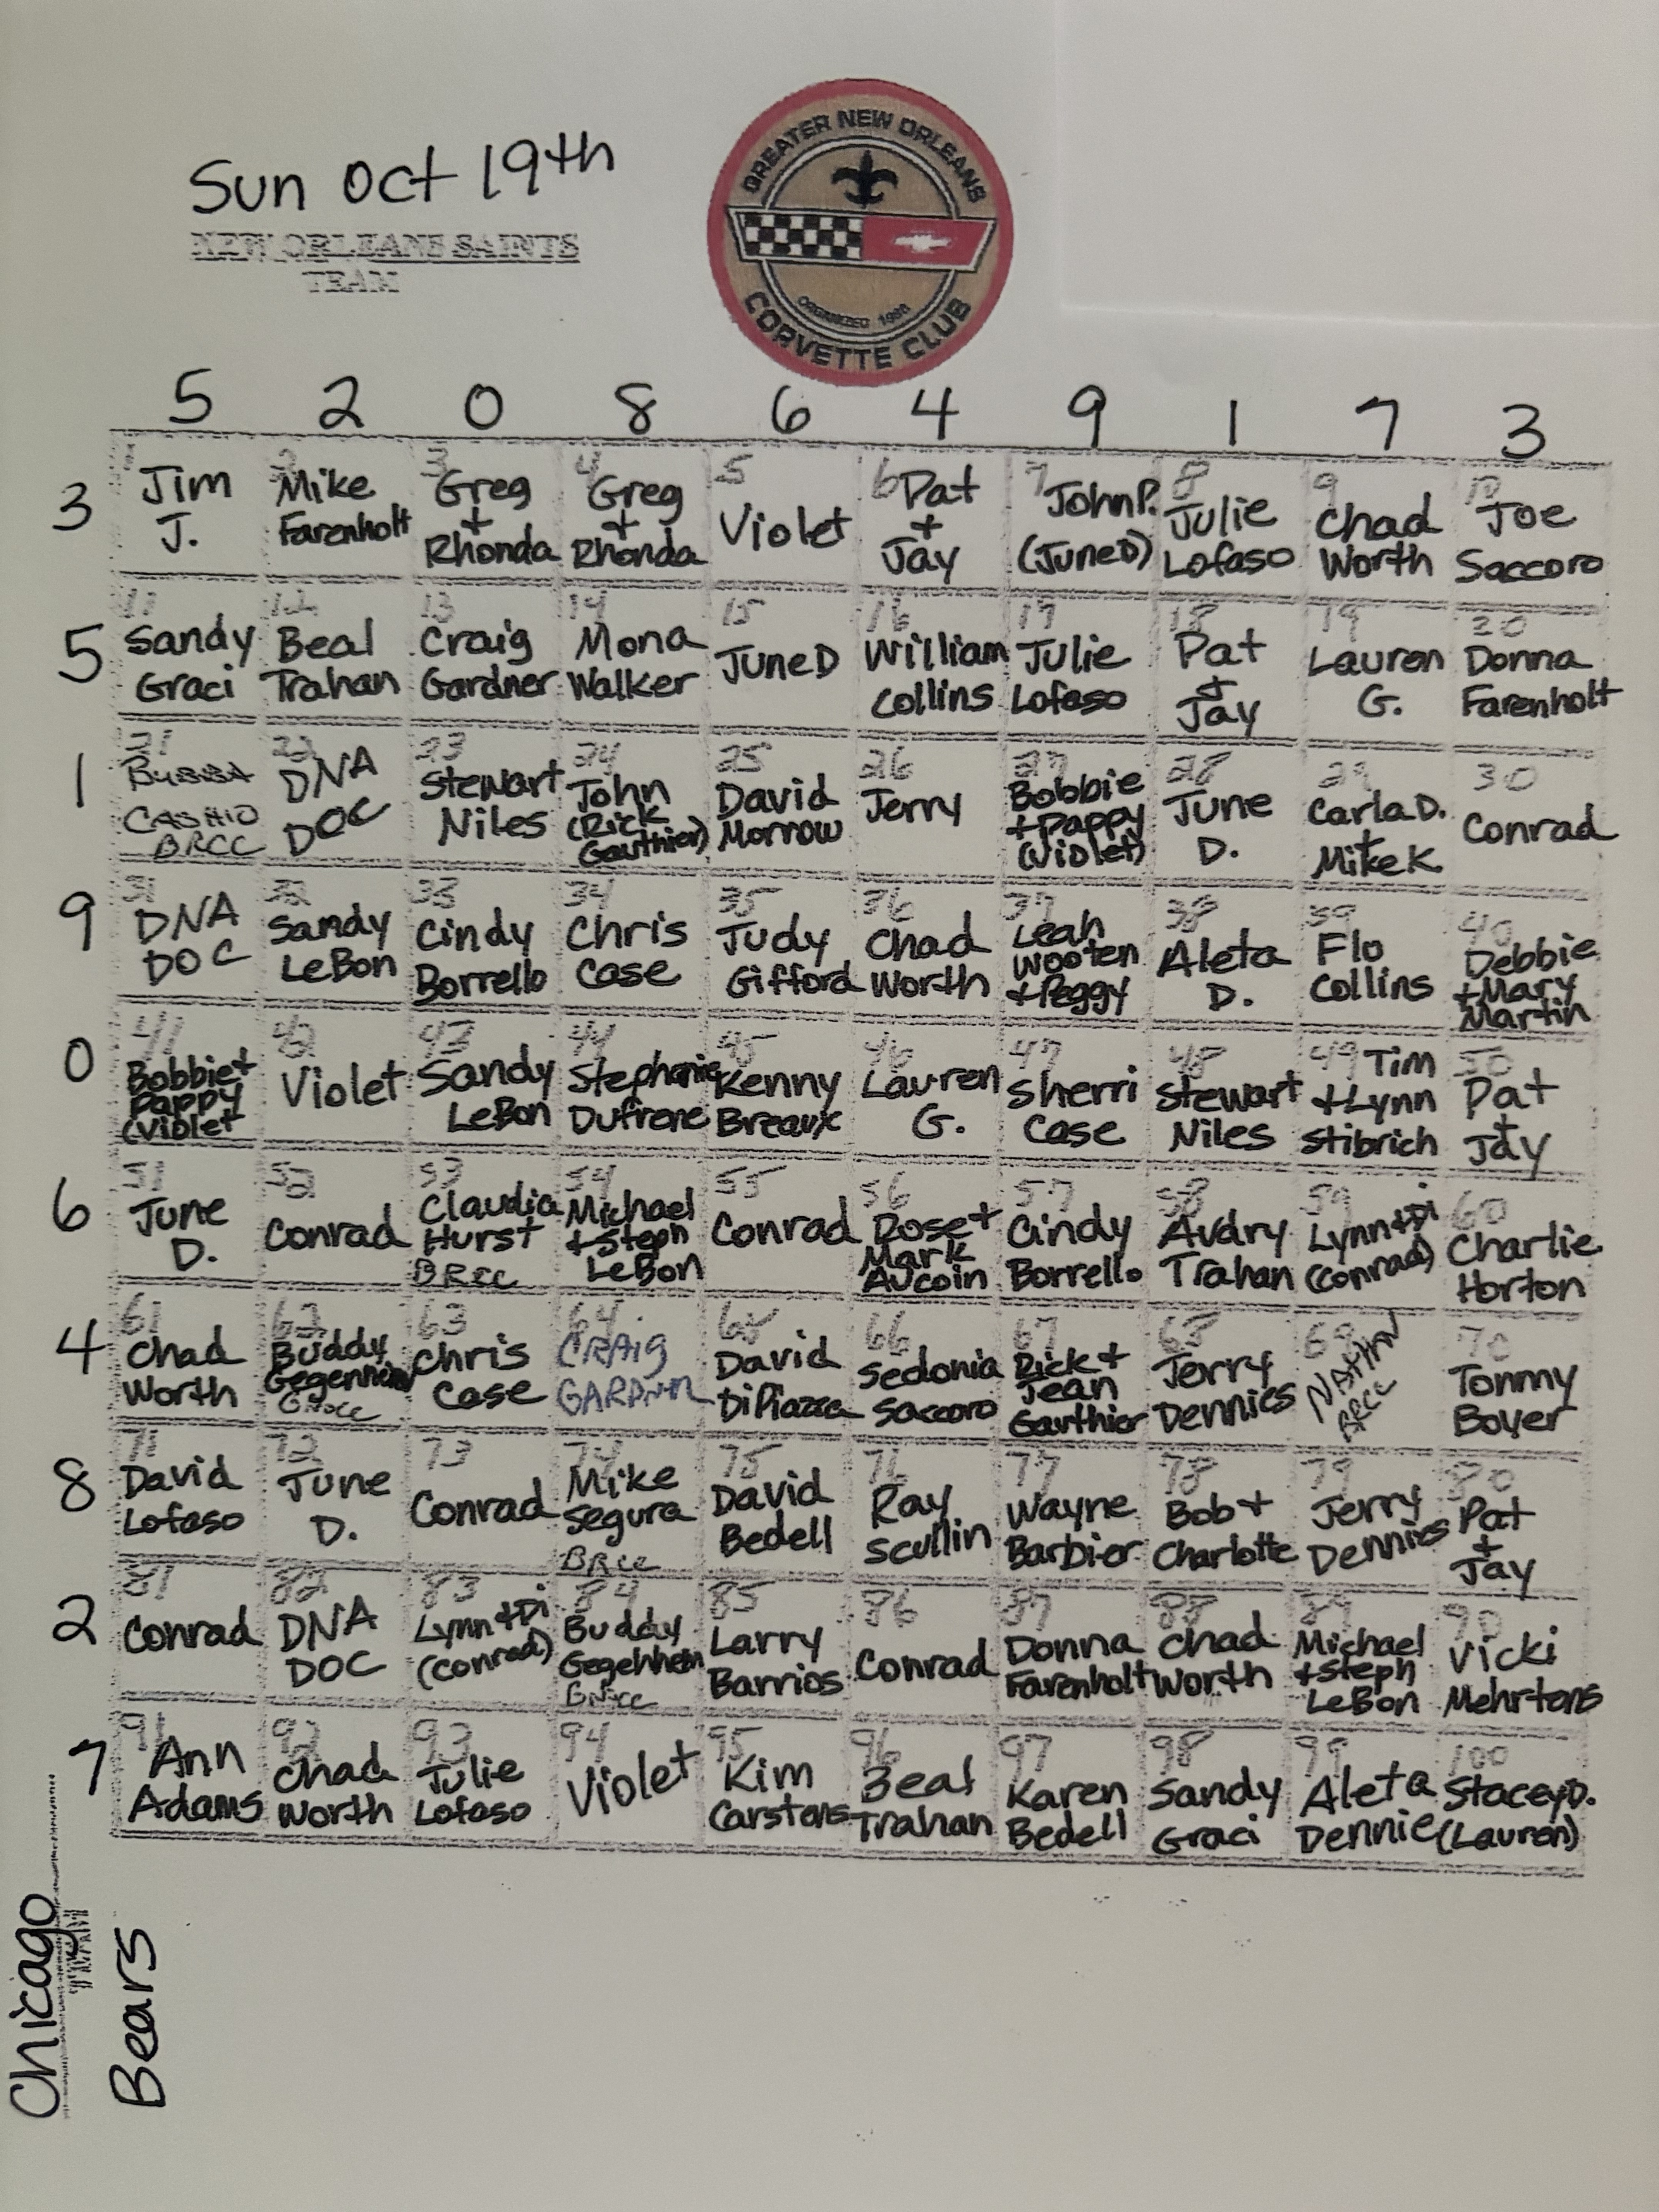 Sun Oct 19th
NEW ORLEANS SAINTS
TEAM
GREATER NEW ORLEANS
ORGANIZED 1966
CORVETTE CLUB
5 2 0 8 6 4 9 1 7 3
3
1 Jim J.
2 Mike Farenholt
3 Greg + Rhonda
4 Greg + Rhonda
5 Violet
6 Pat + Jay
7 John P. (June D)
8 Julie Lofaso
9 Chad Worth
10 Joe Saccoro
5
11 Sandy Graci
12 Beal Trahan
13 Craig Gardner
14 Mona Walker
15 June D
16 William Collins
17 Julie Lofaso
18 Pat + Jay
19 Lauren G.
20 Donna Farenholt
1
21 BUBBA CASHIO BRCC
22 DNA DOC
23 Stewart Niles
24 John (Rick Gauthier)
25 David Morrow
26 Jerry
27 Bobbie + Pappy (Violet)
28 June D.
29 Carla D. + Mike K
30 Conrad
9
31 DNA DOC
32 Sandy LeBon
33 Cindy Borrello
34 Chris Case
35 Judy Gifford
36 Chad Worth
37 Leah Wooten + Peggy
38 Aleta D.
39 Flo Collins
40 Debbie + Mary Martin
0
41 Bobbie + Pappy (Violet
42 Violet
43 Sandy LeBon
44 Stephanie Dufrene
45 Kenny Breaux
46 Lauren G.
47 Sherri Case
48 Stewart Niles
49 Tim + Lynn Stibrich
50 Pat + Jay
6
51 June D.
52 Conrad
53 Claudia Hurst BRCC
54 Michael + Steph LeBon
55 Conrad
56 Rose + Mark Aucoin
57 Cindy Borrello
58 Audry Trahan
59 Lynn + Di (Conrad)
60 Charlie Horton
4
61 Chad Worth
62 Buddy GNOCC
63 Chris Case
64 CRAIG GARDNER
65 David DiPiazza
66 Sedonia Saccoro
67 Rick + Jean Gauthier
68 Jerry Dennies
69 BRCC
70 Tommy Boyer
8
71 David Lofaso
72 June D.
73 Conrad
74 Mike Segura BRCC
75 David Bedell
76 Ray Scullin
77 Wayne Barbier
78 Bob + Charlotte
79 Jerry Dennies
80 Pat + Jay
2
81 Conrad
82 DNA DOC
83 Lynn + Di (Conrad)
84 Buddy GNOCC
85 Larry Barrios
86 Conrad
87 Donna Farenholt
88 Chad Worth
89 Michael + Steph LeBon
90 Vicki Mehrtens
7
91 Ann Adams
92 Chad Worth
93 Julie Lofaso
94 Violet
95 Kim Carstens
96 Beal Trahan
97 Karen Bedell
98 Sandy Graci
99 Aleta Dennie
100 Stacey D. (Lauren)
Chicago
TEAM
Bears